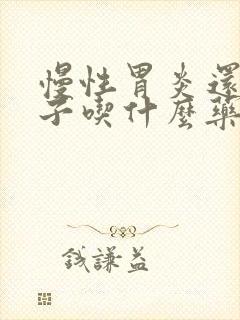 慢性胃炎還
子喫什麼藥
錢謙益